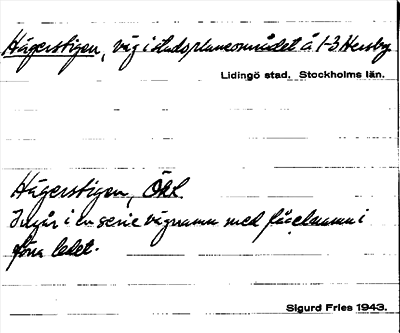 Hägerstigen, väg i stadsplaneområdet å 1-3 Hersby
Lidingö stad. Stockholms län.
Hägerstigen, Ökl.
Ingår i en serie vägnamn med fågelnamn i
förra ledet.
Sigurd Fries 1943.